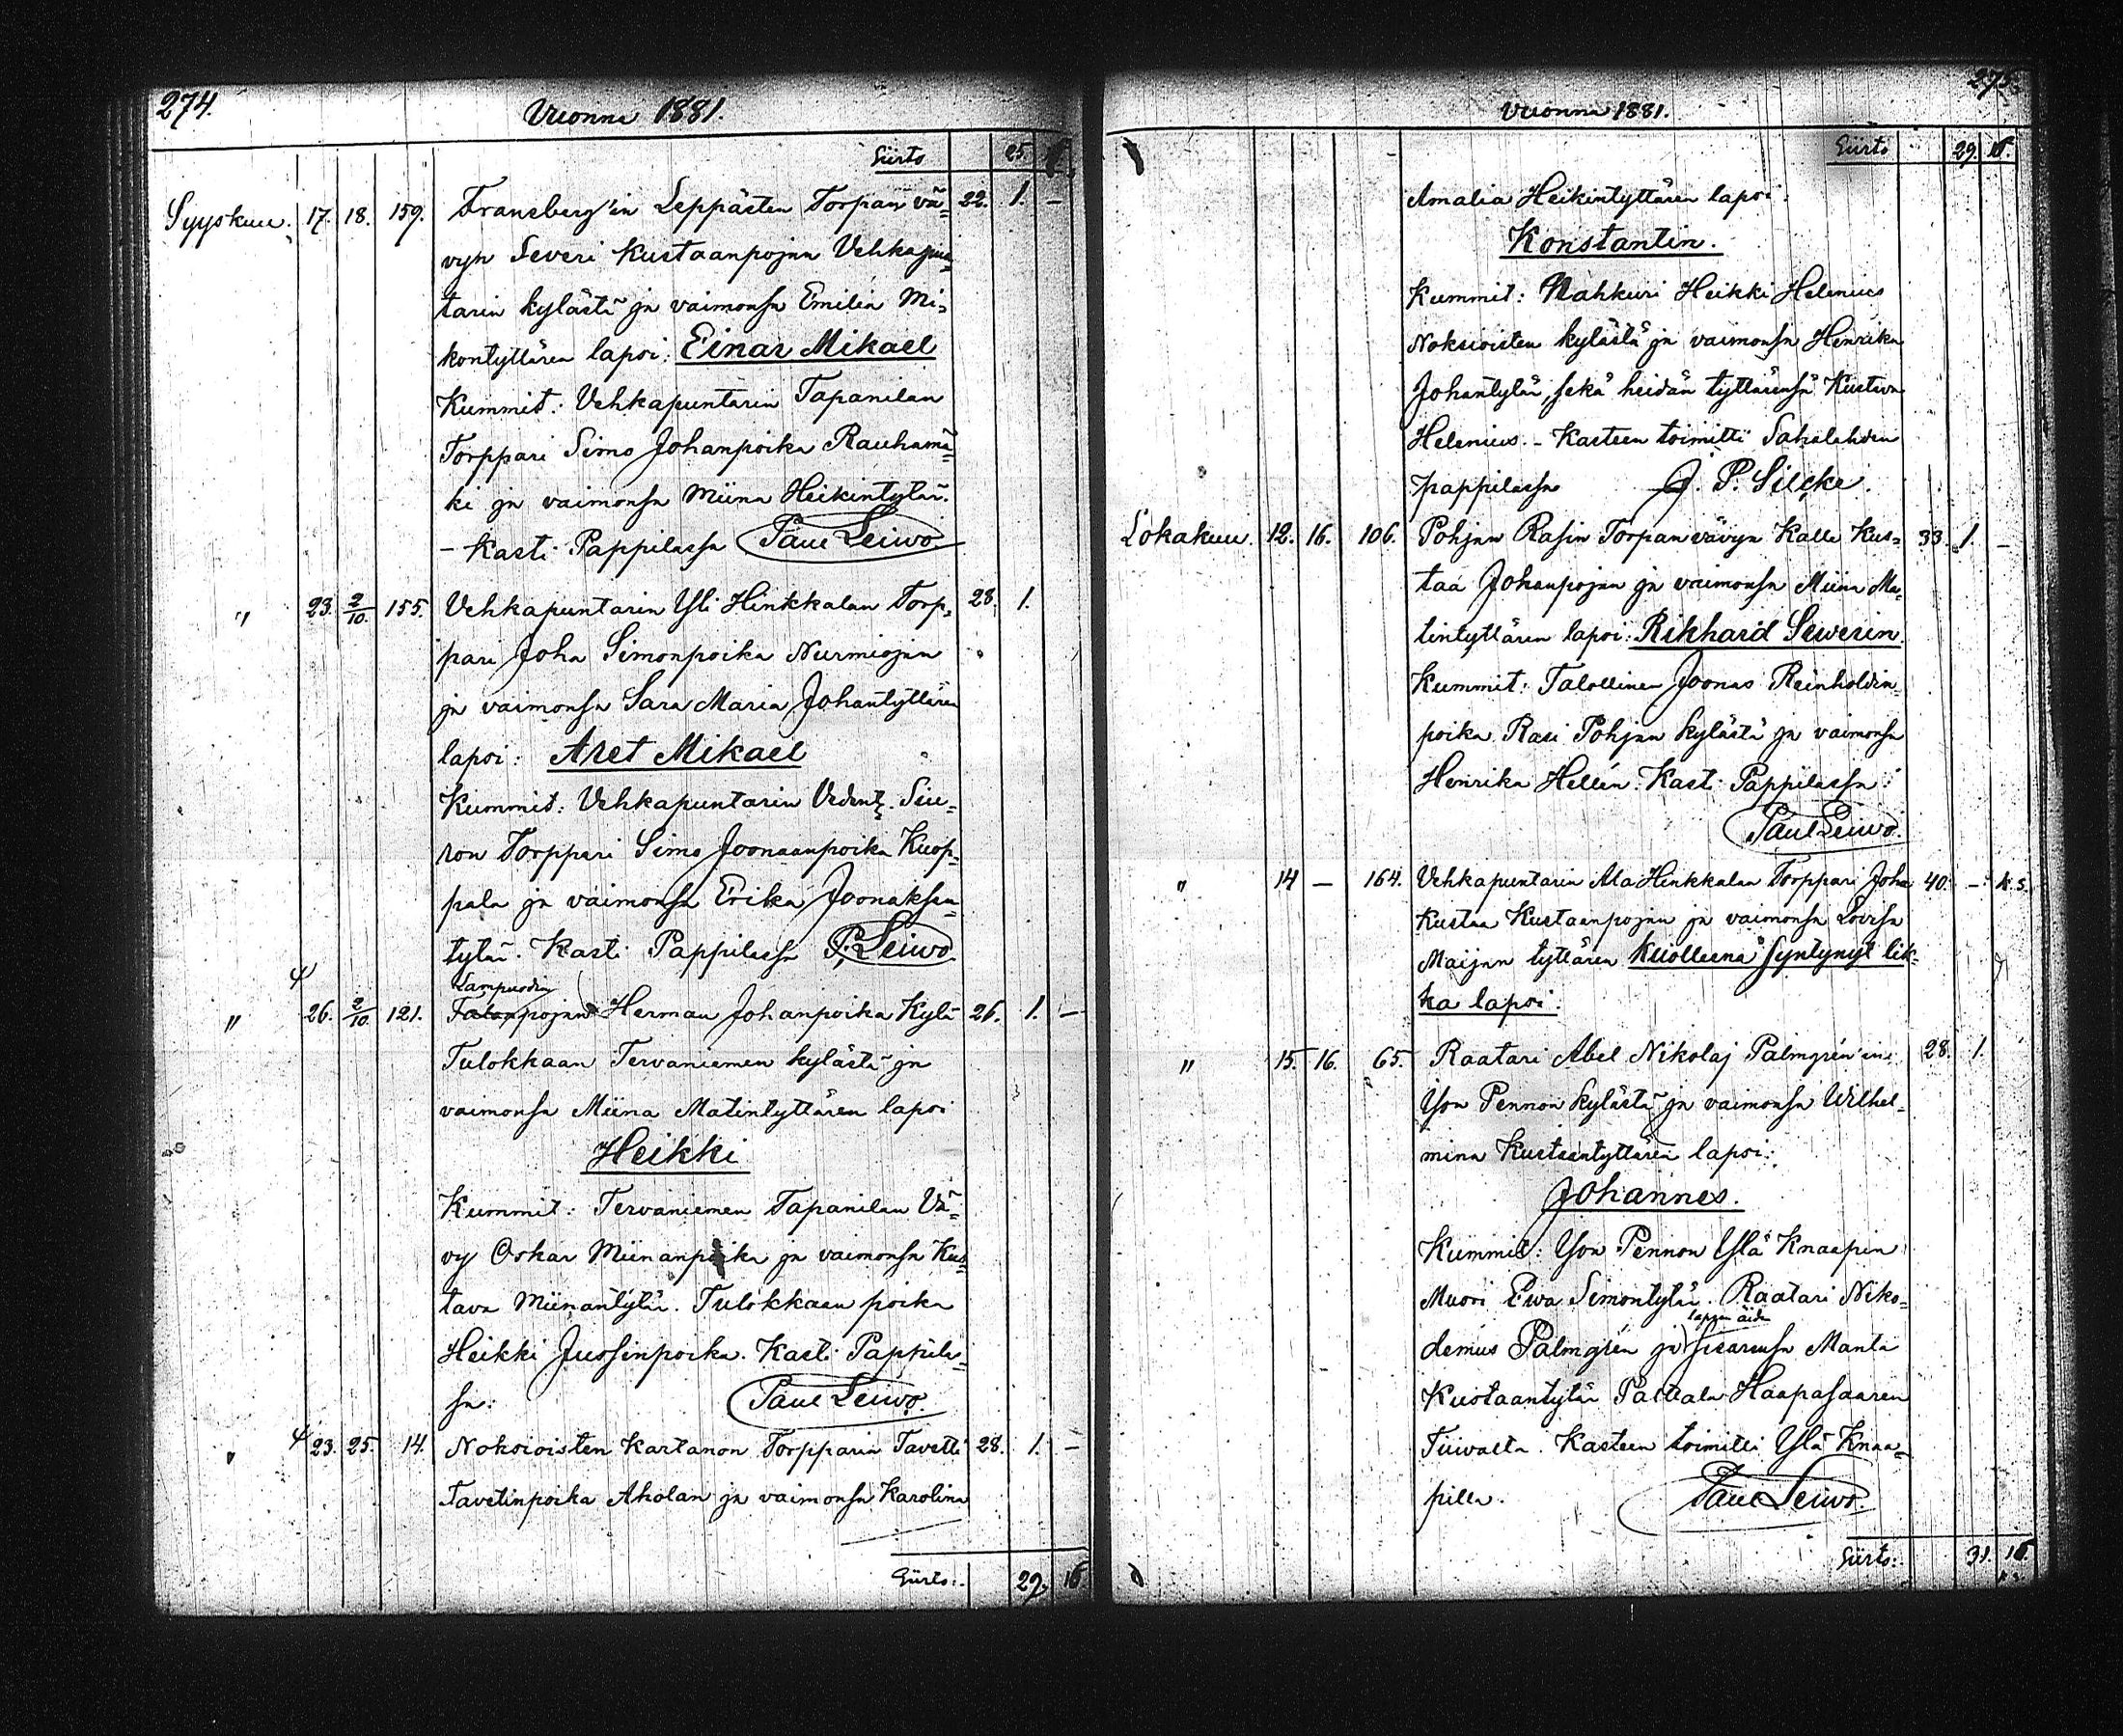 274.
Vuonna 1881.
Siirto 25.
Syyskuu. 17. 18. 159. Fransberg'in Leppästen Torpan vä= 22. 1. –
vyn Severi Kustaanpojan Vehkapun=
tarin kylästä ja vaimonsa Emilia Mi=
kontyttären lapsi: Einar Mikael
Kummit: Vehkapuntarin Tapanilan
Torppari Simo Johanpoika Rauhamä=
ki ja vaimonsa Miina Heikintytär.
– Kasti Pappilassa Paul Leiwo.
" 23. 2/10. 155. Vehkapuntarin Yli Hinkkalan Torp= 28. 1.
pari Joha Simonpoika Nurmiojan
ja vaimonsa Sara Maria Johantyttären
lapsi: Aret Mikael
Kummit: Vehkapuntarin Siu=
ron Torppari Simo Joonaanpoika Kuop=
pala ja vaimonsa Erika Joonaksen=
tytär. Kasti Pappilassa P. Leiwo
Lampuodin
" 26. 2/10. 121. Talonpojan Herman Johanpoika Kylä 26. 1. –
Tulokkaan Tervaniemen kylästä ja
vaimonsa Miina Matintyttären lapsi
Heikki
Kummit: Tervaniemen Tapanilan Vä=
vy Oskar Miinanpoika ja vaimonsa Kus=
tava Miinantytär. Tulokkaan poika
Heikki Jussinpoika. Kasti Pappilas=
sa: Paul Leiwo.
" 23. 25. 14. Noksioisten Kartanon Torpparin Tavetti 28. 1. –
Tavetinpoika Aholan ja vaimonsa Karolina
Siirto: 29. 16.
275.
Vuonna 1881.
Siirto 29. 16.
Amalia Heikintyttären lapsi:
Konstantin.
Kummit: Nahkuri Heikki Helenius
Noksioisten kylästä ja vaimonsa Henrika
Johantytär, sekä heidän tyttärensä Kustava
Helenius. – Kasteen toimitti Sahalahden
pappilassa J. P. Silcke.
Lokakuu. 12. 16. 106. Pohjan Rasin Torpan vävyn Kalle Kus= 33. 1. –
taa Johanpojan ja vaimonsa Miina Ma=
tintyttären lapsi: Rikhard Sewerin.
Kummit: Talollinen Joonas Reinholdin=
poika Rasi Pohjan kylästä ja vaimonsa
Henrika Hellén. Kast. Pappilassa:
Paul Leiwo.
" 14 – 164. Vehkapuntarin Ala Hinkkalan Torppari Joha 40. – k.s.
Kustaa Kustaanpojan ja vaimonsa Lovisa
Maijan tyttären kuolleena syntynyt tik=
ka lapsi.
" 15. 16. 65. Raatari Abel Nikolaj Palmgrén'in 28. 1.
Yon Pennon kylästä ja vaimonsa Wilhel=
mina Kustaantyttären lapsi:
Johannes.
Kummit: Yon Pennon Ylä Knaapin
Muori Ewa Simontytär. Raatari Niko=
lapsen äidin
demus Palmgrén ja sisarensa Manta
Kustaantytär Pattala Haapasaaren
Tiivalta. Kasteen toimitti Ylä Knaa=
pilla. Paul Leiwo.
Siirto: 31. 16.